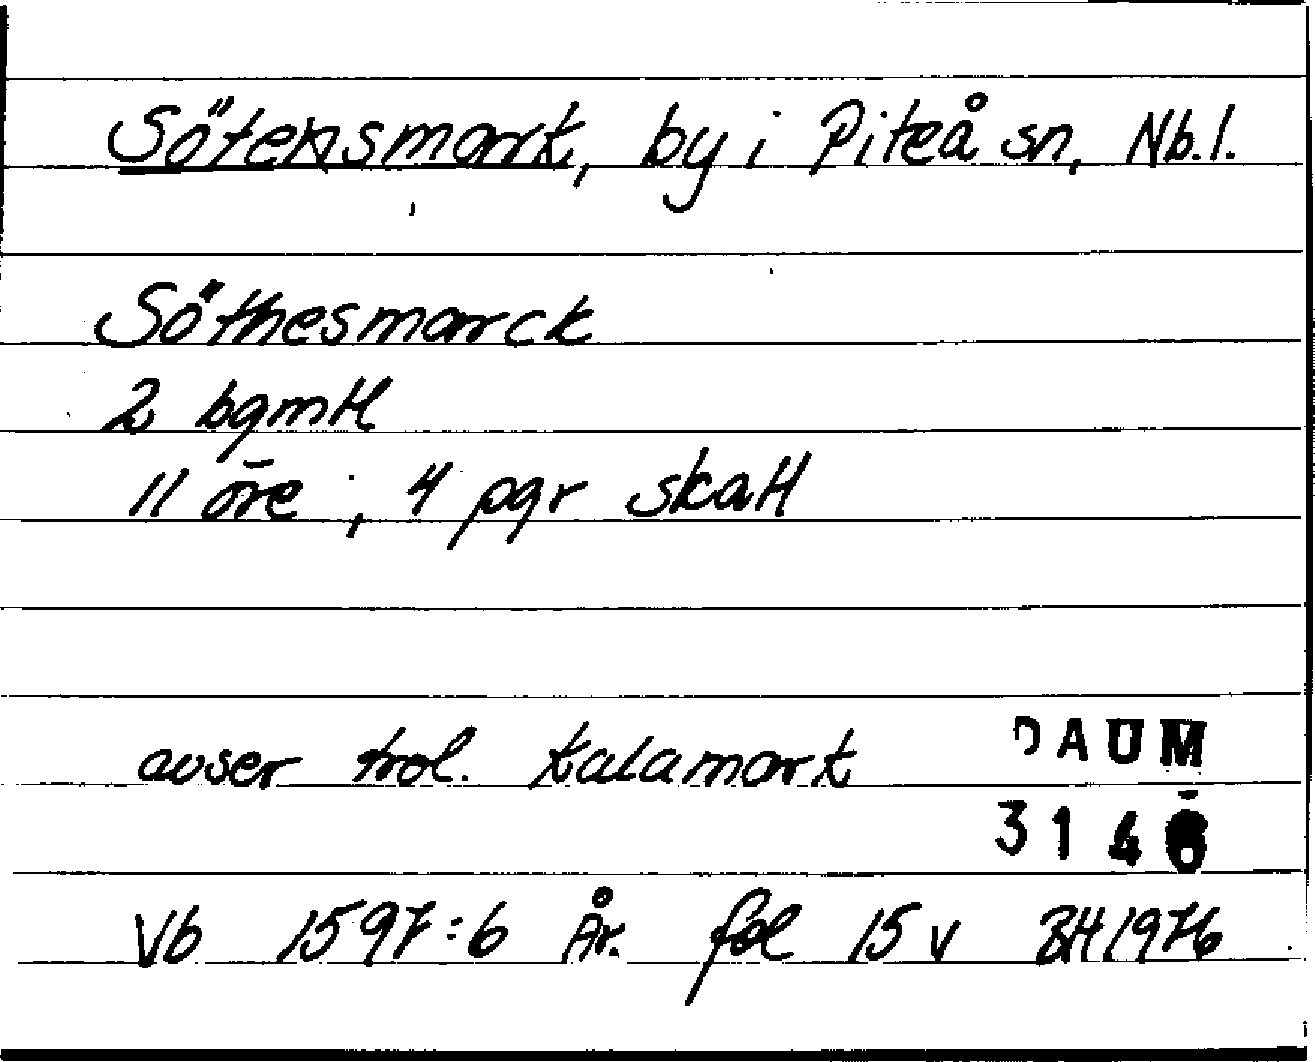 Sötensmark, by i Piteå sn, Nb.l.
Söthesmarck
2 bgmtl
11 öre ; 4 pgr skatt
avser trol. Kalamark
DAUM
3146
Vb 1597:6 Är. fol 15 v BH 1976